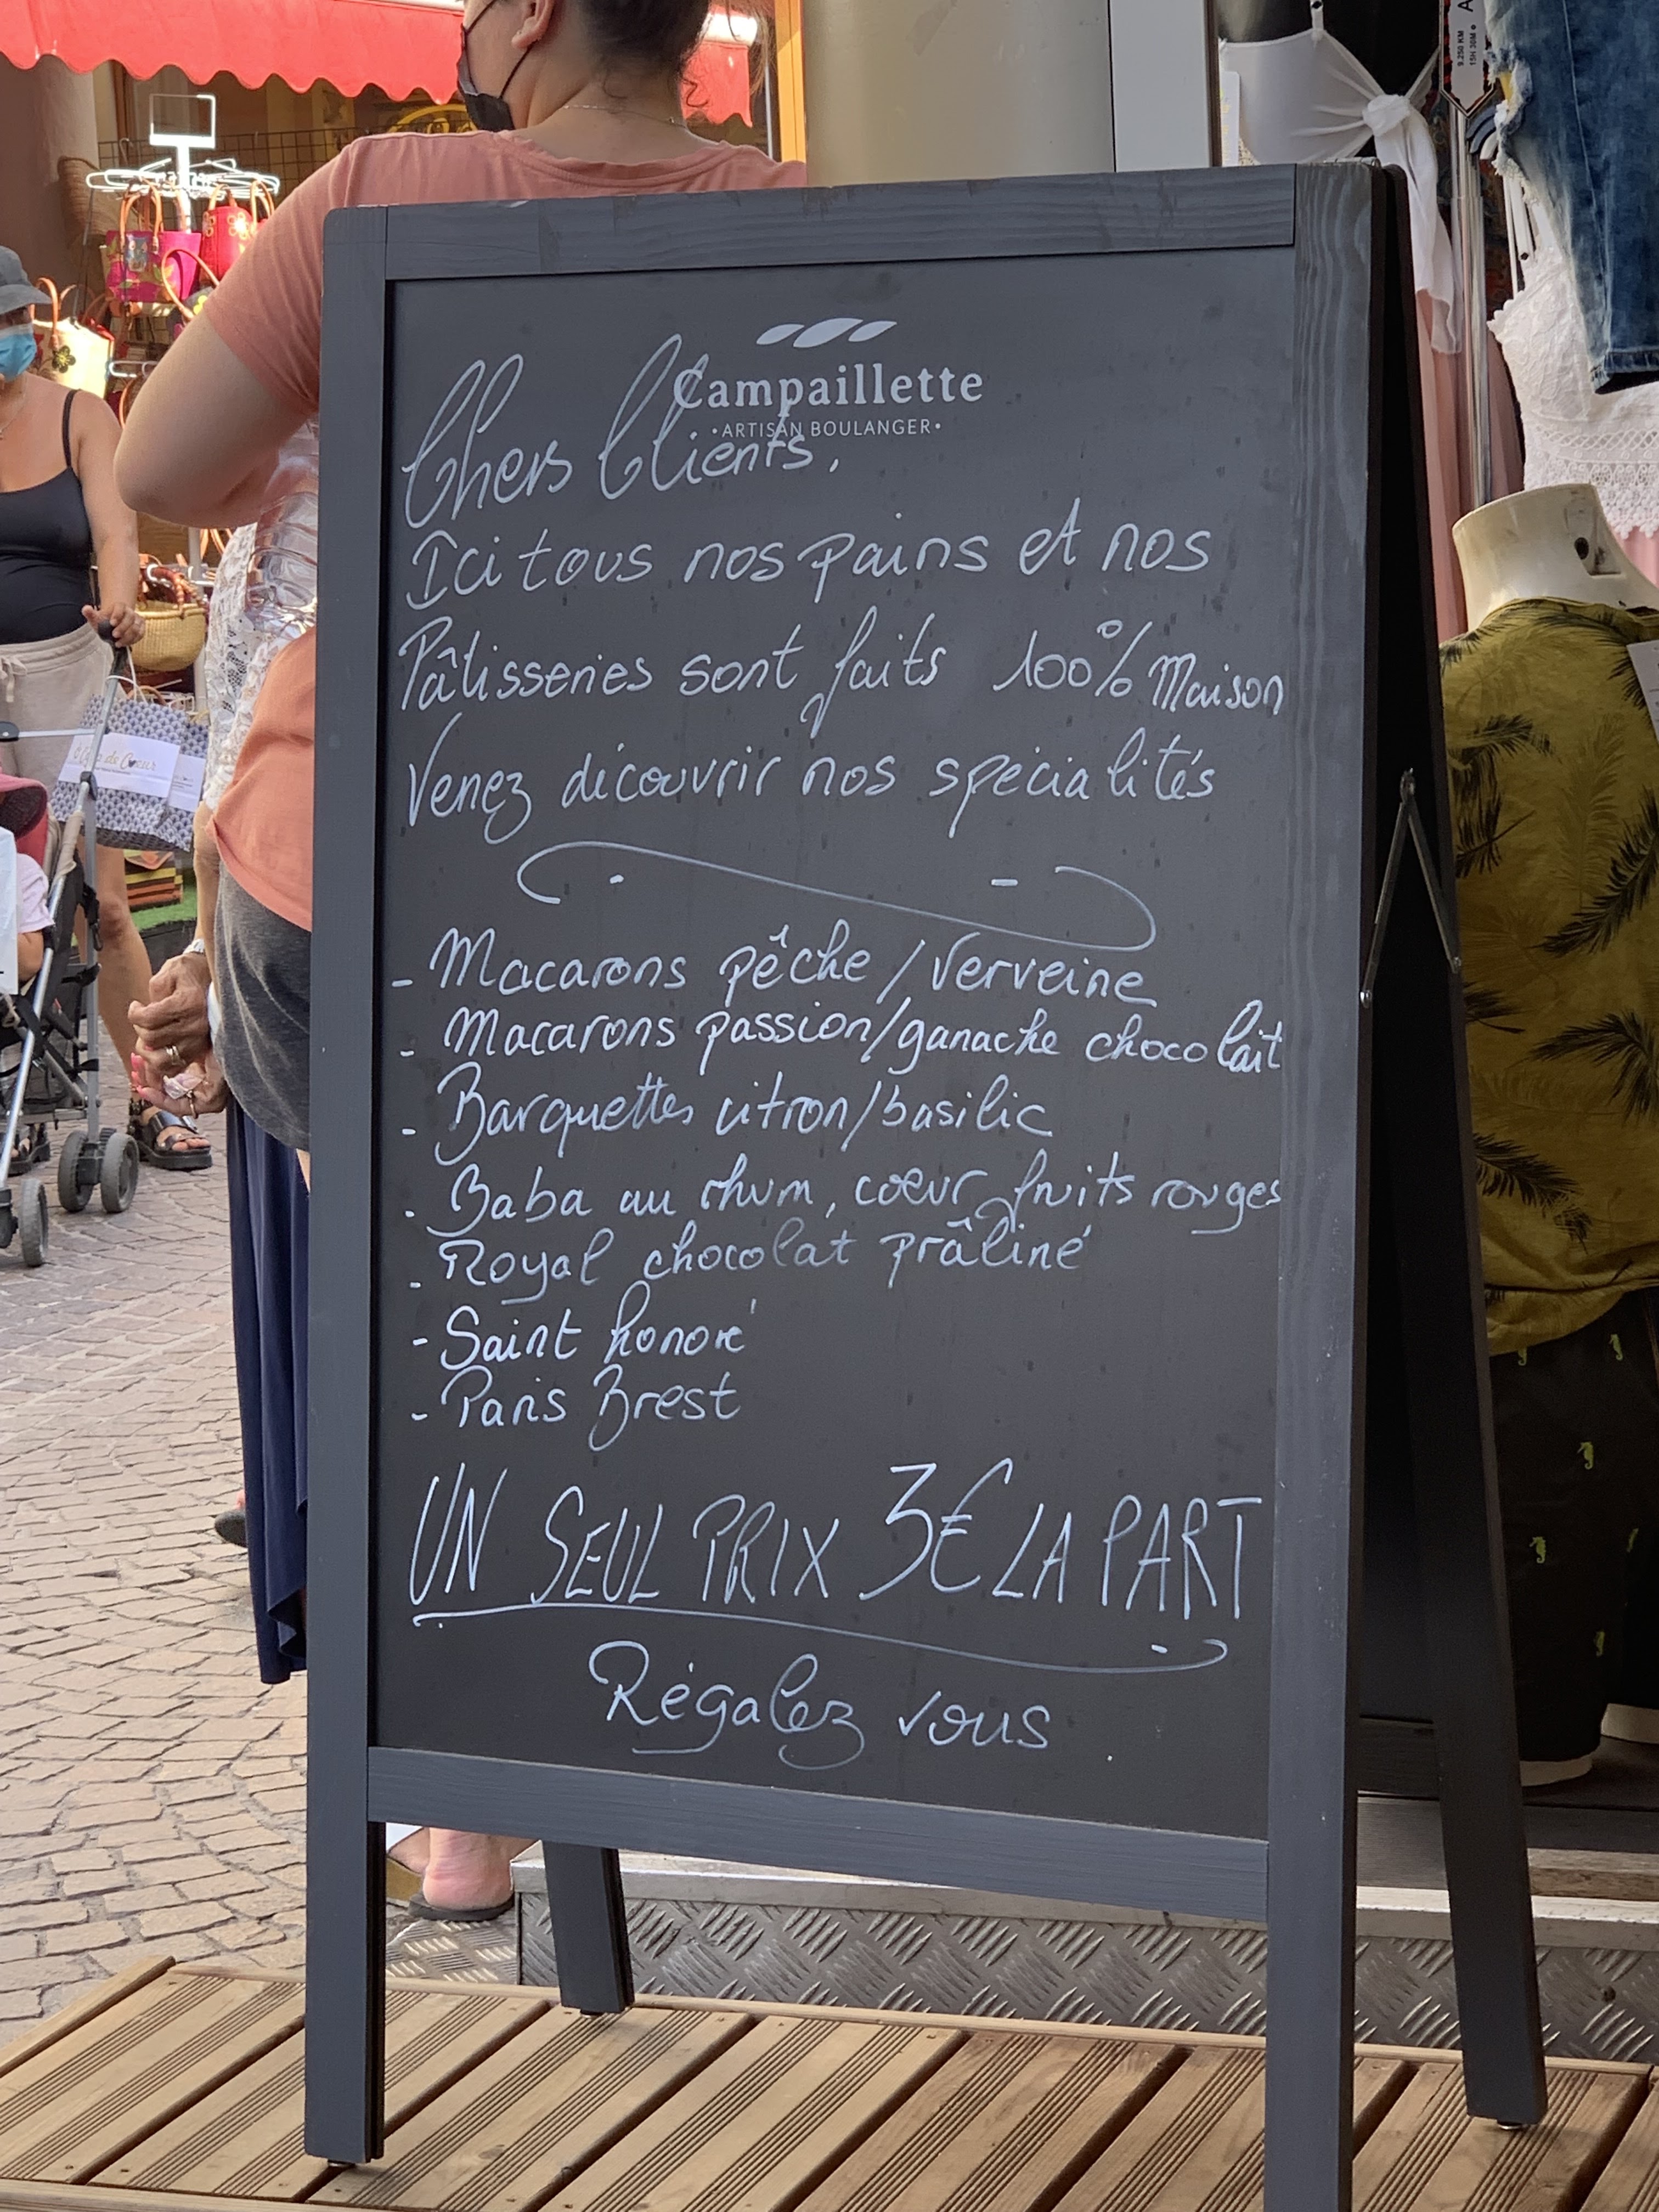 Campaillette
•ARTISAN BOULANGER•
Chers Clients,
Ici tous nos pains et nos
Pâtisseries sont faits 100% Maison
Venez découvrir nos spécialités
- Macarons pêche / Verveine
- Macarons passion/ganache chocolait
- Barquettes citron/basilic
- Baba au rhum, cœur fruits rouges
- Royal chocolat prâliné
- Saint honoré
- Paris Brest
UN SEUL PRIX 3€ LA PART
Régalez vous
9.250 KM
15H 30M